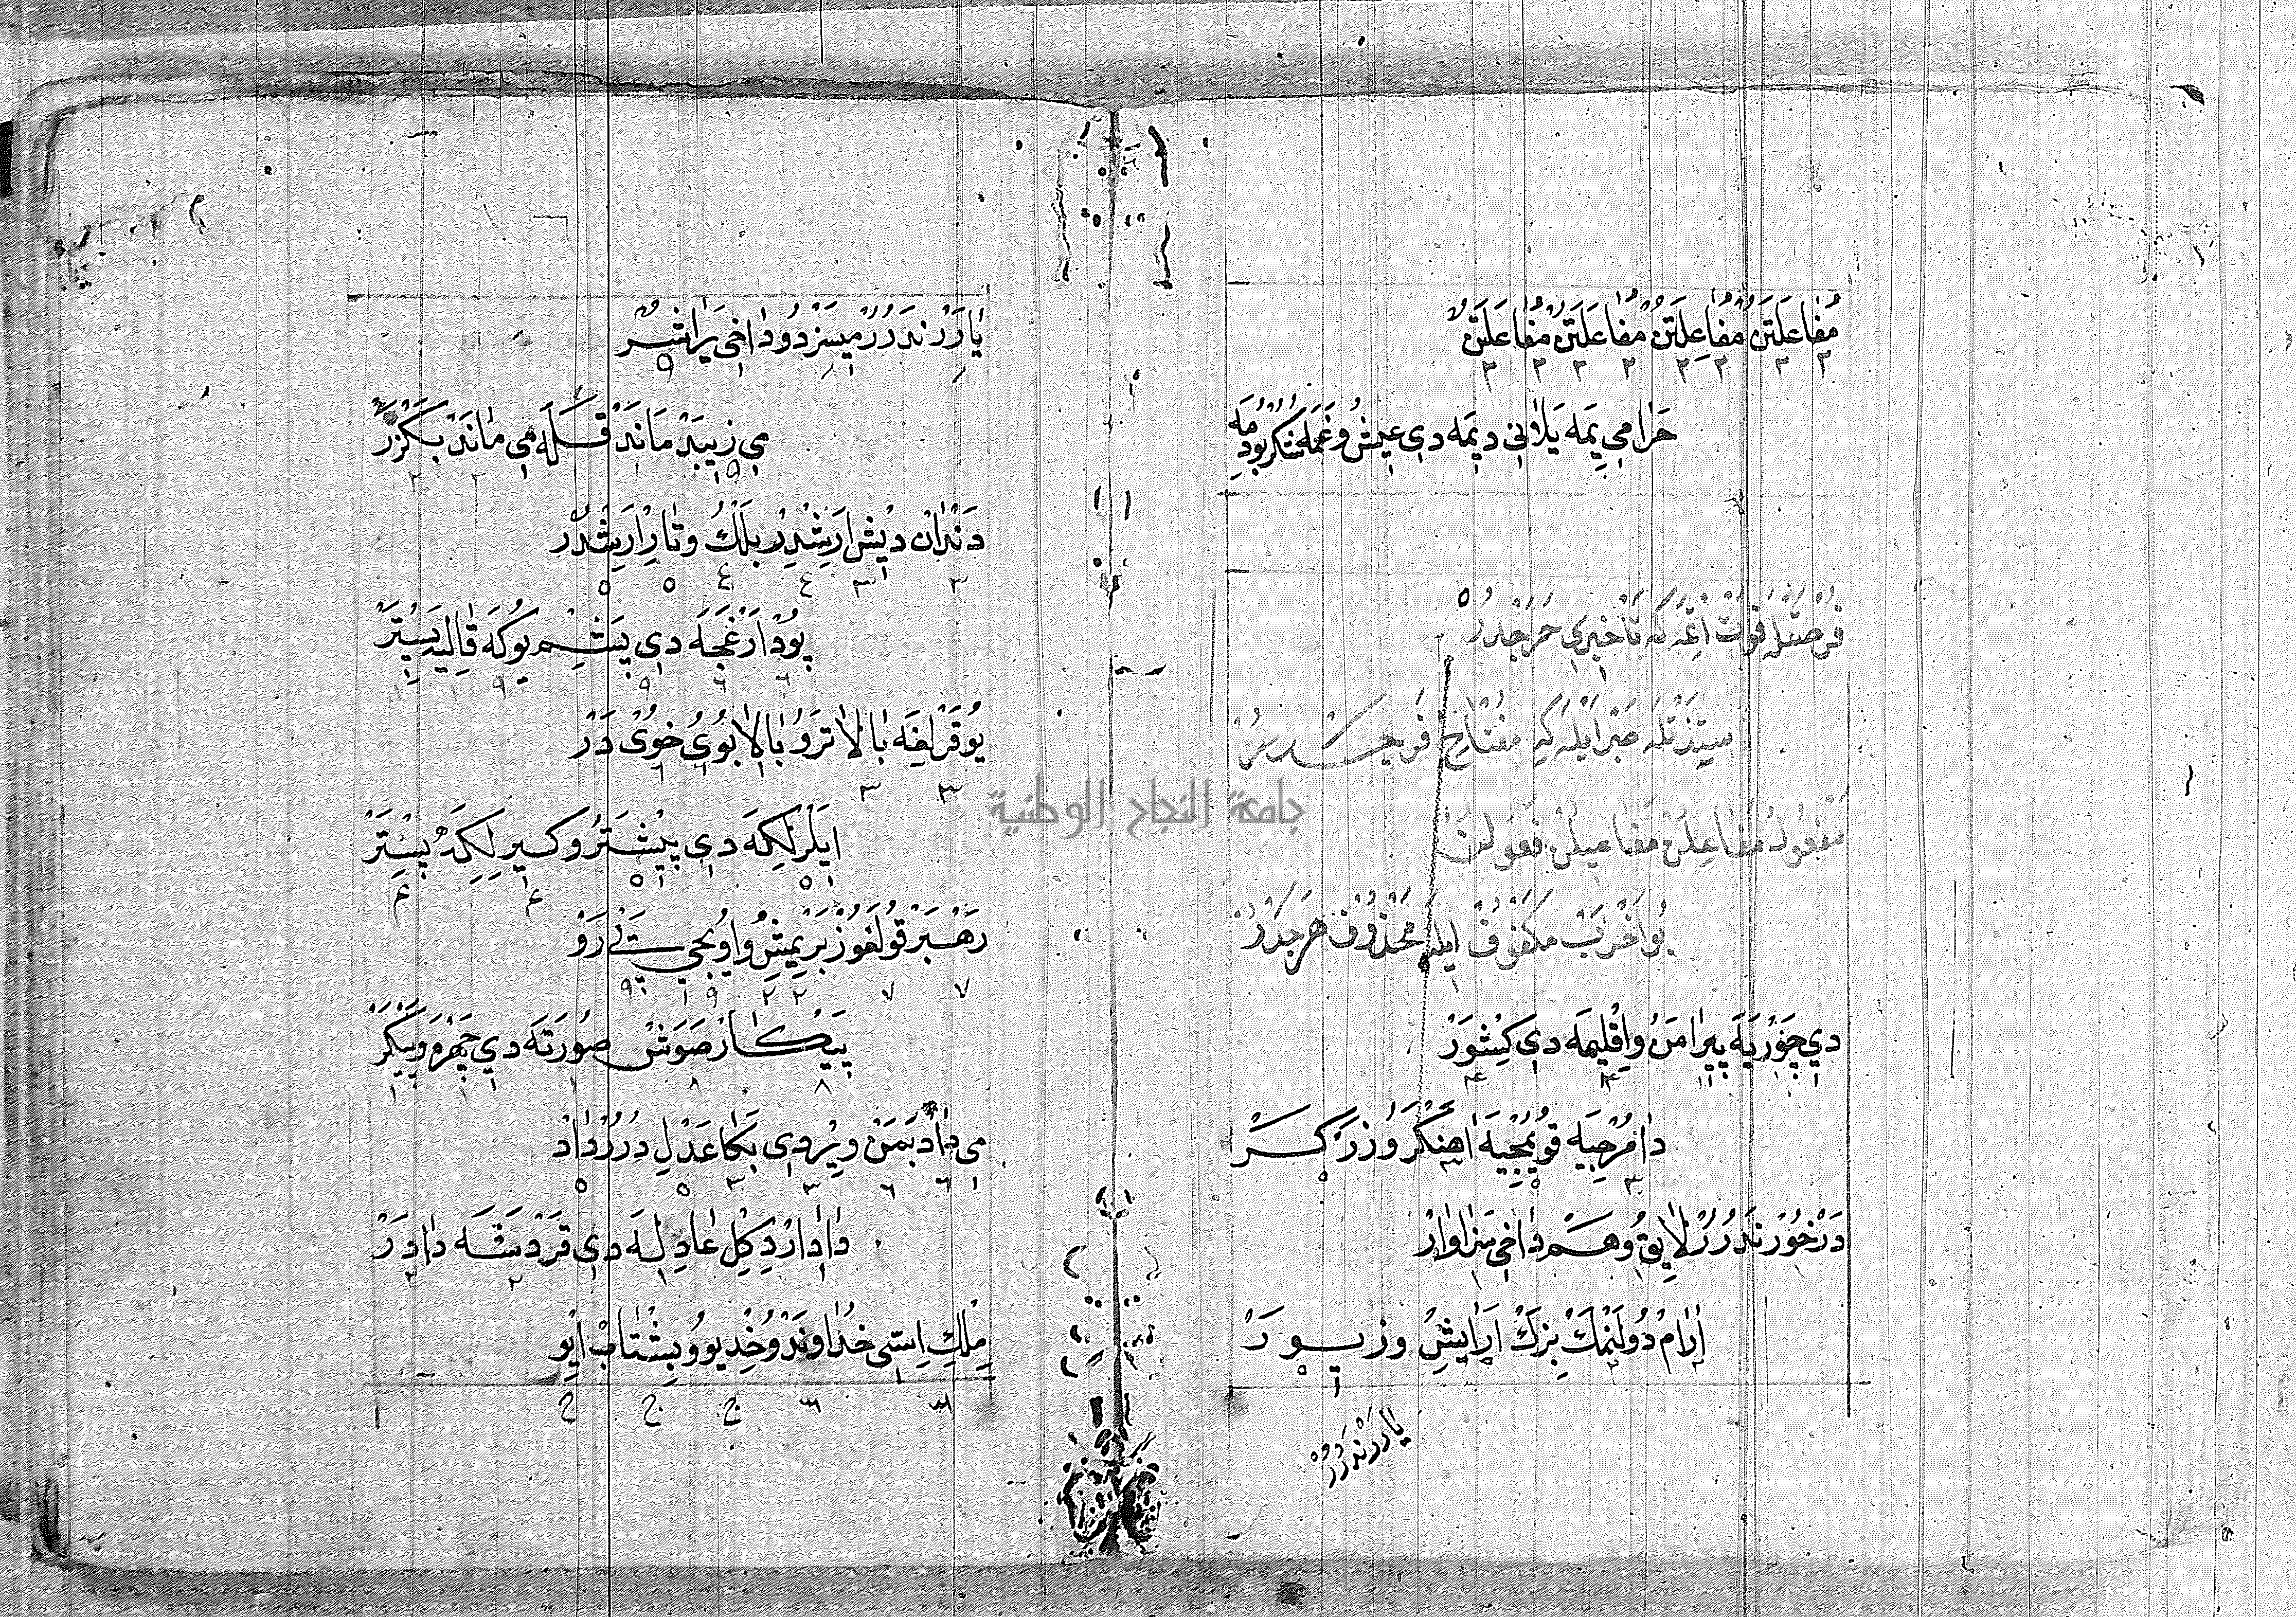 مُفَاعَلَتُنْ مُفَاعَلَتُنْ مُفَاعَلَتُنْ مُفَاعَلَتُنْ
٢ ٣ ٣ ٣ ٢ ٣ ٣ ٣
حرامی یمه یلانی دیمه دی عیش و غمله شکر بودمه
فرصتله فوت اتمه که تأخیری حرجدر
ستدتله صبر ایله که مفتاح فرجدر
مفعول مفاعلن مفاعیلن فعولن
بو اخرب مکفوف ایله محذوف هزجدر
دی چوریه پیرامن و اقلیمه دی کشور
دامرجیه قویمجیه آهنکر و زرکر
درخور ندرر لایق و هم داخی سزاوار
آرام دولنمك بزك آرایش و زیور
یارر ندرر
یارر ندرر میسزد و داخی یراشر
می زیبد ماند قله می ماند بکزر
دندان دیش ارشدر بلك و تار ارشدر
پود ارغجه دی پشم یوکه قالیه بستر
یوقرلغه بالا تر و بالا بوی خوی در
ایلرلکمه دی پیشتر و کیرلکه پستر
رهبر قولغوز بریمش و اویجی ستی رو
پیکار صوش صورته دی چهره و پیکر
می داد بمن ویردی بکا عدل درر داد
دادار دکل عادله دی قردشه دادر
ملك اسی خداوند و خدیو و بشتاب ایو
جامعة النجاح الوطنية